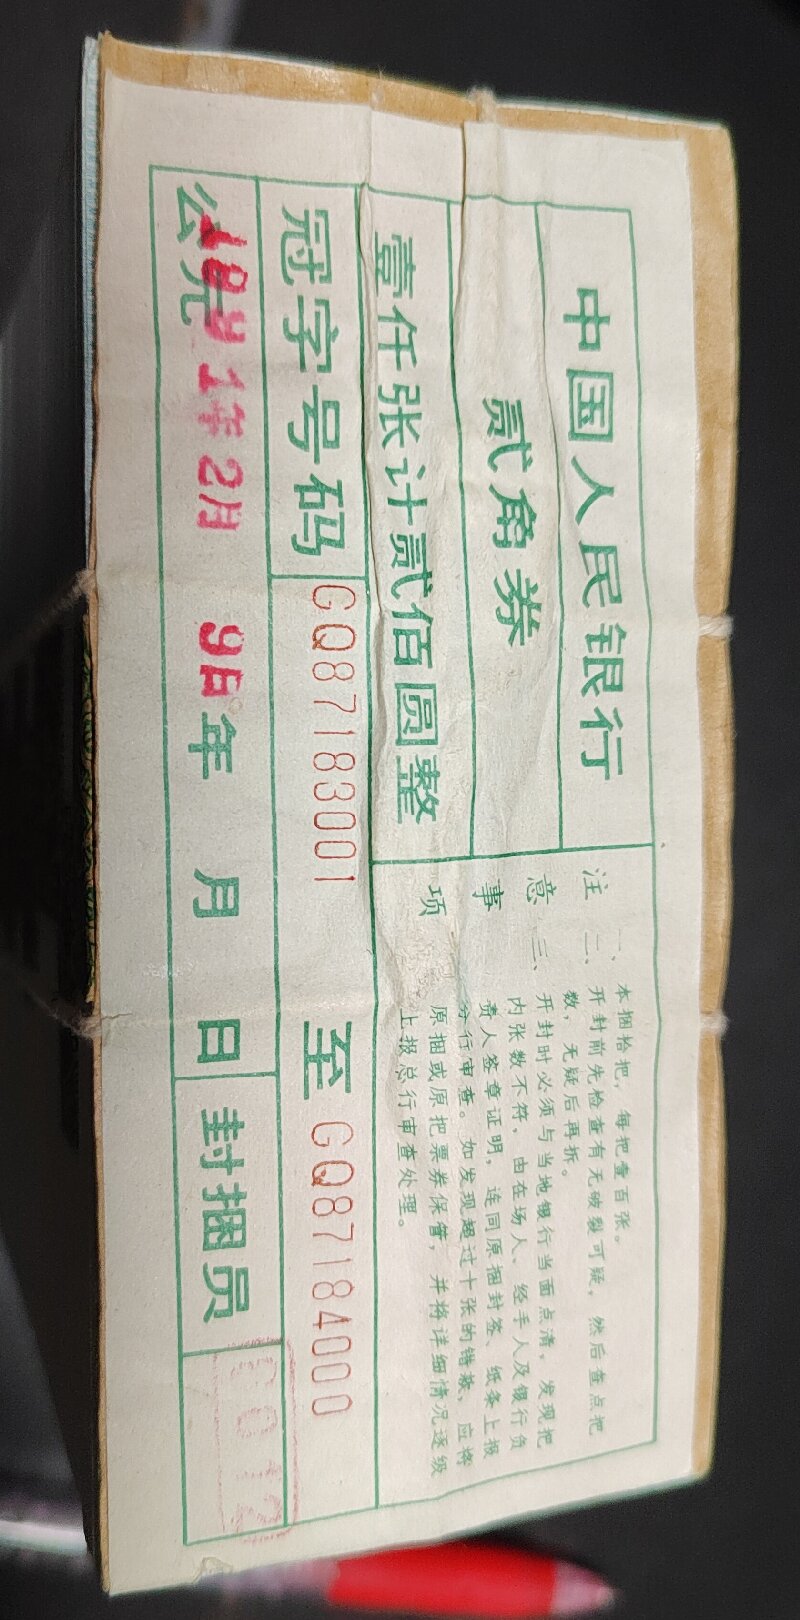 中国人民银行
贰角券
壹仟张计贰佰圆整
冠字号码
GQ87183001 至 GQ87184000
公元 年 月 日
1991年2月 9日
封捆员
注意事项
本捆拾把，每把壹百张。
二、开封前先检查有无破裂可疑，然后查点把
数，无疑后再拆。
三、开封时必须与当地银行当面点清，发现把
内张数不符，由在场人、经手人及银行负
责人签章证明，连同原捆封签、纸条上报
分行审查。如发现超过十张的错款，应将
原捆或原把票券保管，并将详细情况逐级
上报总行审查处理。